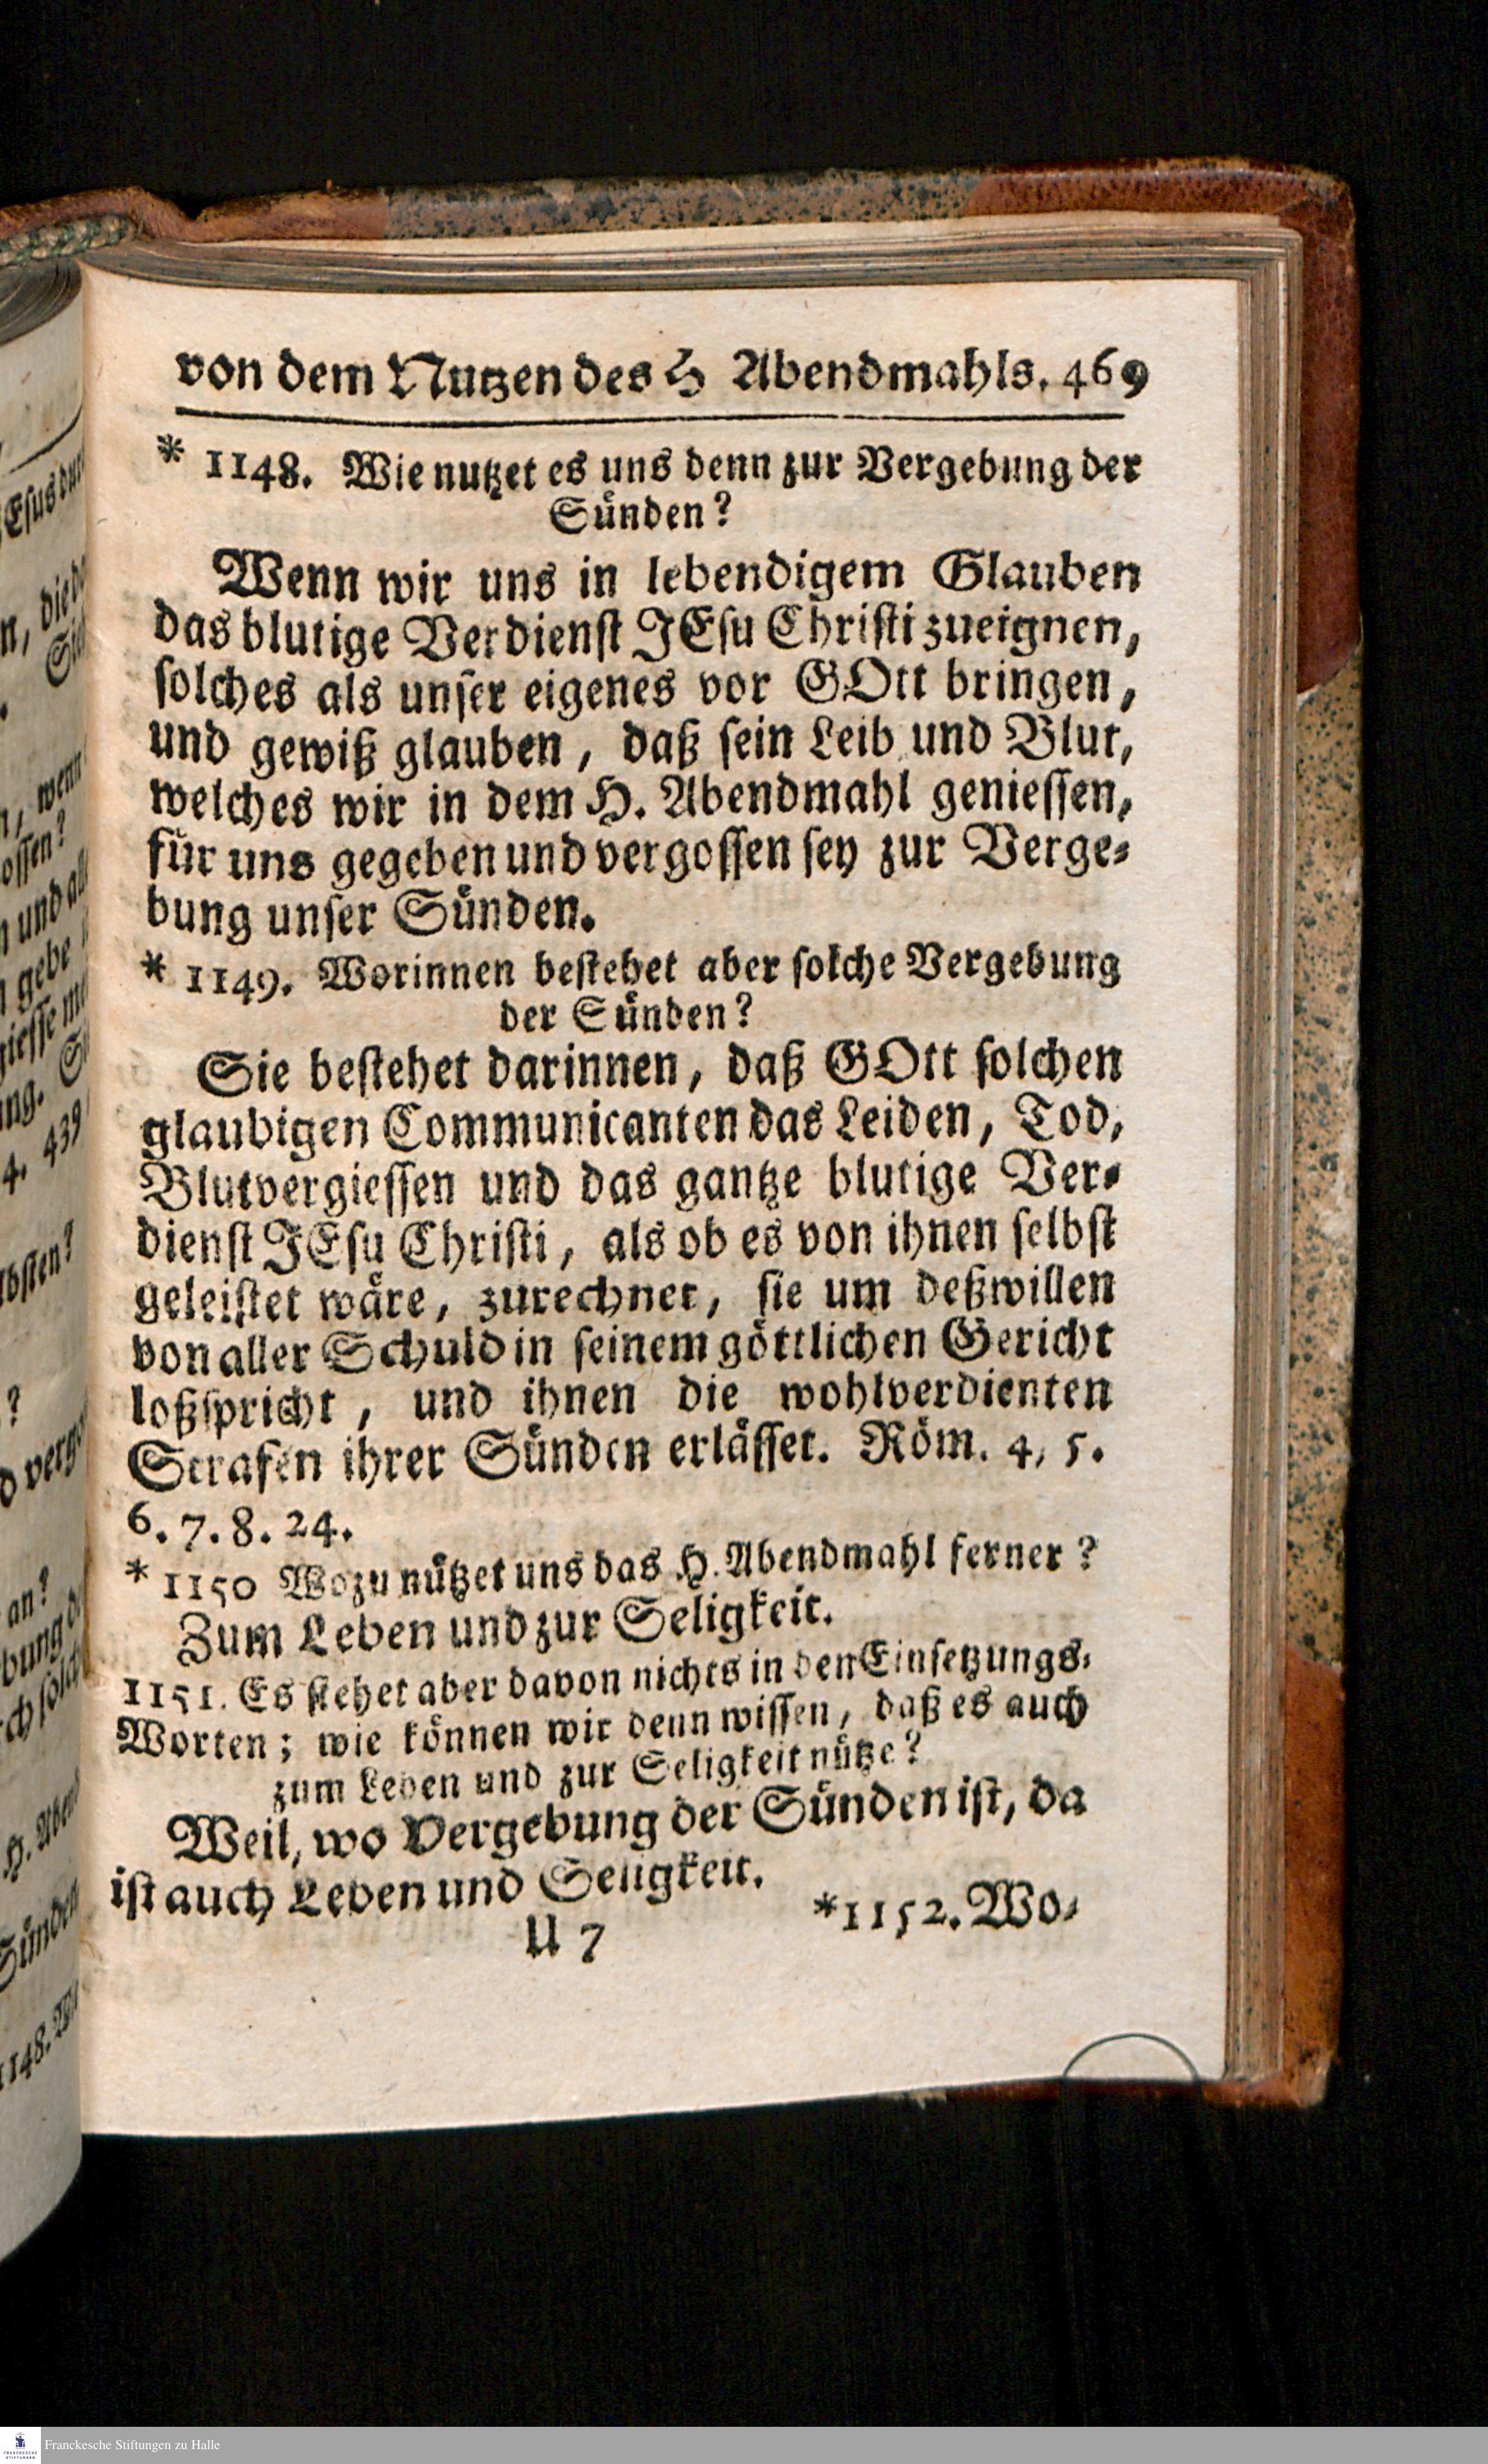 von dem Nutzen des H Abendmahls. 469
* 1148. Wie nutzet es uns denn zur Vergebung der
Sünden?
Wenn wir uns in lebendigem Glauben
das blutige Verdienst JEsu Christi zueignen,
solches als unser eigenes vor GOtt bringen,
und gewiß glauben, daß sein Leib und Blut,
welches wir in dem H. Abendmahl geniessen,
für uns gegeben und vergossen sey zur Verge-
bung unser Sünden.
* 1149. Worinnen bestehet aber solche Vergebung
der Sünden?
Sie bestehet darinnen, daß GOtt solchen
glaubigen Communicanten das Leiden, Tod,
Blutvergiessen und das gantze blutige Ver-
dienst JEsu Christi, als ob es von ihnen selbst
geleistet wäre, zurechnet, sie um deßwillen
von aller Schuld in seinem göttlichen Gericht
loßspricht, und ihnen die wohlverdienten
Strafen ihrer Sünden erlässet. Röm. 4, 5.
6. 7. 8. 24.
* 1150 Wozu nützet uns das H. Abendmahl ferner?
Zum Leben und zur Seligkeit.
1151. Es stehet aber davon nichts in den Einsetzungs-
Worten; wie können wir denn wissen, daß es auch
zum Leben und zur Seligkeit nütze?
Weil, wo Vergebung der Sünden ist, da
ist auch Leben und Seligkeit.
U 7
*1152. Wo-
Esus
n, die
n, wenn
ossen?
n und
gebe
giesse
ung.
4. 439
lbsten?
?
an?
H. Aben
Sünden
1148.
Franckesche Stiftungen zu Halle